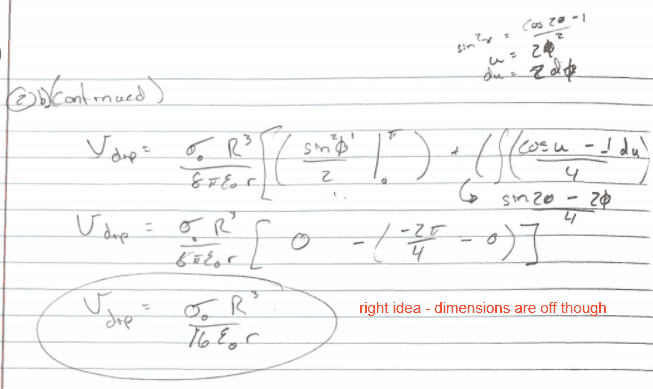 sin²x = cos2θ-1 / 2
u = 2ϕ
du = 2dϕ
② b) (continued)
V_dip = σ₀ R³ / 8πε₀r [ ( sin²ϕ' / 2 |₀^π ) + ( ∫ (cosu - 1 du) / 4
↳ sin2θ - 2ϕ / 4
V_dip = σ₀ R³ / 8πε₀r [ 0 - ( -2π / 4 - 0 ) ]
V_dip = σ₀ R³ / 16 ε₀ r
right idea - dimensions are off though